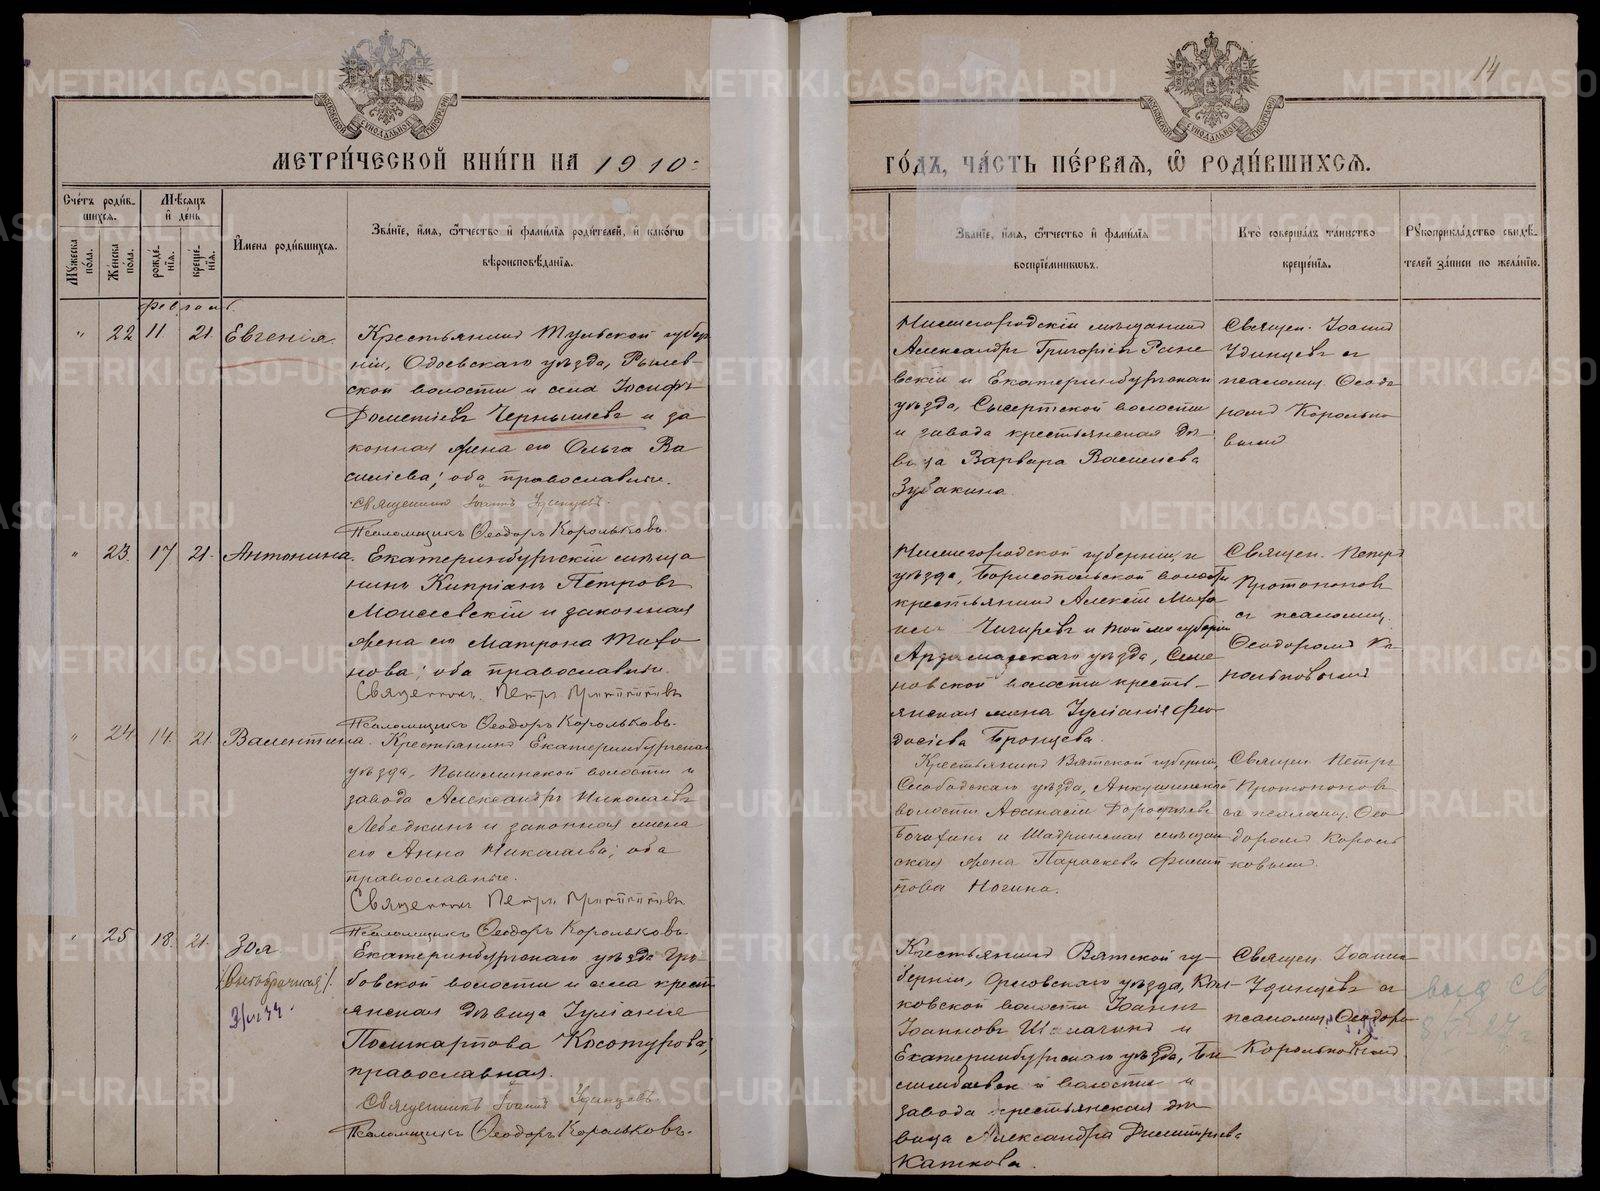 14
МЕТРИ́ЧЕСКОЙ КНИ́ГИ НА 1910
ГО́ДЪ, ЧА́СТЬ ПЕ́РВАѦ, Ѿ РОДИ́ВШИХСѦ.
Сче́тъ роди́в-
шихсѧ.
Мѣ́сѧцъ
и де́нь
Мꙋжеска по́ла.
Женска по́ла.
рожде́-
нїѧ.
креще́-
нїѧ.
И́мена роди́вшихсѧ.
Зва́нїе, и́мѧ, ѻ́тчество и фами́лїѧ роди́телей, и како́гѡ
вѣроисповѣ́данїѧ.
Зва́нїе, и́мѧ, ѻ́тчество и фами́лїѧ
воспрїе́мникѡвъ.
Кто̀ соверша́лъ та́инство
креще́нїѧ.
Рꙋкоприкла́дство свидѣ́-
телей за́писи по жела́нїю.
Февраль
" 22 11 21. Евгенія
Крестьянинъ Тульской губер
ніи, Одоевскаго уѣзда, Рылев-
ской волости и села Іосифъ
Дометіевъ Чернышевъ и за
конная жена его Ольга Ва
силіева; оба православные.
Священникъ Іоаннъ Удинцевъ.
Псаломщикъ Ѳеодоръ Корольковъ.
Нижегородскій мѣщанинъ
Александръ Григоріевъ
и Екатеринбургскаго
уѣзда, Сысертской волости
и завода крестьянская дѣ
вица Варвара Васильева
Зубакина.
Священ. Іоаннъ
Удинцевъ съ
псаломщ. Ѳеодо
ромъ Королько
вымъ
" 23. 17 21. Антонина.
Екатеринбургскій мѣща
нинъ Кипріанъ Петровъ
Моисеевскій и законная
жена его Матрона Тихо
нова; оба православные.
Священникъ Петръ Протопоповъ
Псаломщикъ Ѳеодоръ Корольковъ.
Нижегородской губерніи и
уѣзда, Борисопольской волости
крестьянинъ Алексѣй
Чичиревъ и той же губерніи
Арзамасскаго уѣзда,
новской волости кресть-
янская жена Іуліанія Ѳео
досіева Бронцева.
Священ. Петръ
Протопоповъ
съ псаломщ.
Ѳеодоромъ Ко
рольковымъ
" 24 14. 21. Валентина.
Крестьянинъ Екатеринбургскаго
уѣзда, Пышминской волости и
завода Александръ Николаевъ
Лебедкинъ и законная жена
его Анна Николаева; оба
православные.
Священникъ Петръ Протопоповъ
Псаломщикъ Ѳеодоръ Корольковъ.
Крестьянинъ Вятской губерніи
Слободскаго уѣзда,
волости Аѳанасій Дороѳеевъ
и Шадринская мѣщан
ская жена Параскева Филип
пова Ногина.
Священ. Петръ
Протопоповъ
съ псаломщ. Ѳео
доромъ Король
ковымъ.
25 18. 21. Зоя
(Внѣбрачная).
Екатеринбургскаго уѣзда Гро
бовской волости и села крест
янская дѣвица Іуліанія
Поликарпова Косотурова,
православная.
Священникъ Іоаннъ Удинцевъ
Псаломщикъ Ѳеодоръ Корольковъ.
Крестьянинъ Вятской гу-
берніи, Орловскаго уѣзда,
ковской волости Іоаннъ
Іоанновъ и
Екатеринбургскаго уѣзда, Би
лимбаевской волости и
завода крестьянская дѣ
вица Александра Димитріева
Каткова.
Священ. Іоаннъ
Удинцевъ съ
псаломщ. Ѳеодоро
Корольковымъ.
METRIKI.GASO-URAL.RU